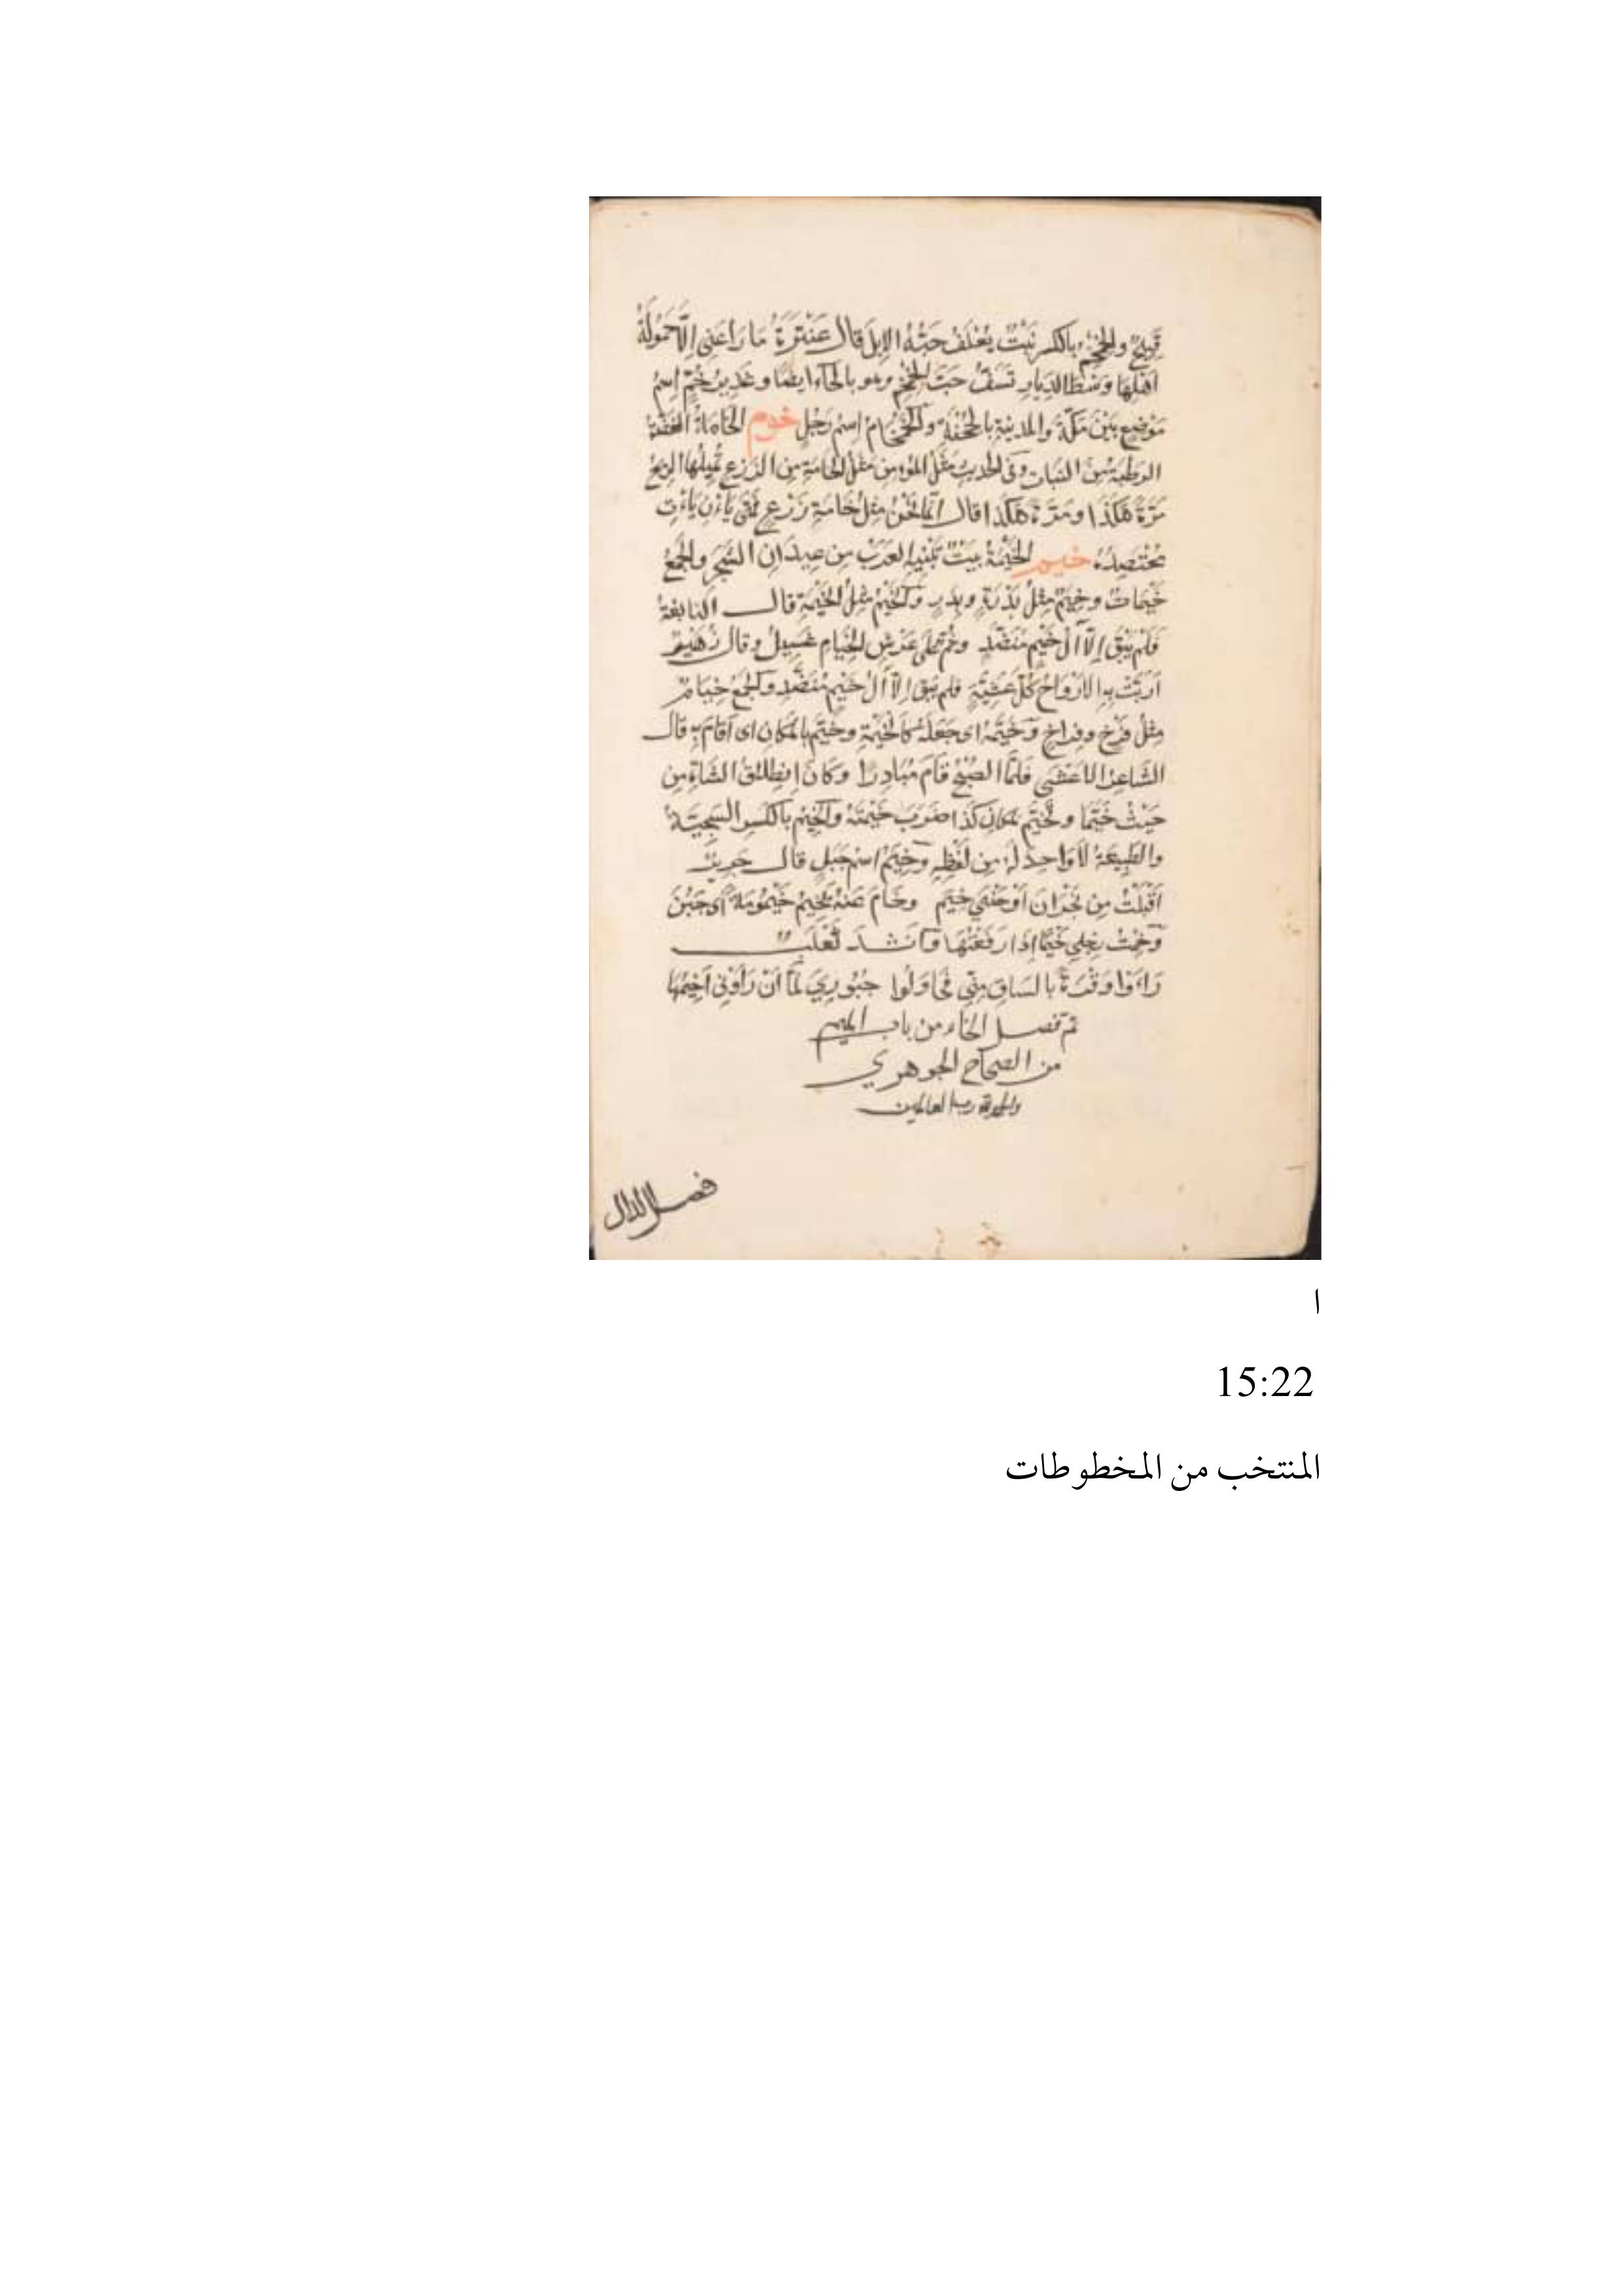 قَبِيحٌ والخِمْخِمُ بالكسر نَبْتٌ يُعْلَفُ حَبُّهُ الإبلَ قال عَنْتَرَةُ مَا رَاعَنِي إلَّا حَمُولَةُ
أهْلِهَا وَسْطَ الدِّيَارِ تَسَفُّ حَبَّ الخِمْخِمِ وهو بالحاء ايضًا وغَدِيرُ خُمٍّ اسمُ
مَوْضِعٍ بَيْنَ مَكَّةَ والمدينةِ بالجُحْفَةِ والخَمْخَامُ اِسْمُ رَجُلٍ خوم الخَامَةُ الغَضَّةُ
الرطبة مِنَ النبات وفي الحديث مَثَلُ المؤمن مَثَلُ الخامَةِ مِن الزرع تُمِيلُها الريحُ
مَرَّةً هَكَذَا ومَرَّةً هَكَذا قال انما نَحْنُ مِثلُ خَامَةِ زَرْعٍ فَمَتَى يَأْنِ يَأْتِ
مُحْتَصِدُهُ خيم الخَيْمَةُ بيتٌ تَبْنِيهِ العَرَبُ مِن عِيدَانِ الشَّجَرِ والجَمْعُ
خَيْمَاتٌ وخِيَمٌ مِثلُ بَدْرَةٍ وبِدَرٍ والخَيْمُ مِثلُ الخَيْمَةِ قال النابغةُ
فَلَمْ يَبْقَ إلَّا آلُ خَيْمٍ مُنَضَّدٍ وثُمٌّ على عَرْشِ الخِيَامِ غَسِيلُ وقال زُهَيْرٌ
أرَبَّتْ بِهِ الأرْوَاحُ كُلَّ عَشِيَّةٍ فلم يَبْقَ إلَّا آلُ خَيْمٍ مُنَضَّدِ والجَمْعُ خِيَامٌ
مِثلُ فَرْخٍ وفِرَاخٍ وَخَيَّمَهُ اى جَعَلَهُ كَالخَيْمَةِ وخَيَّمَ بالمَكَانِ اى أقَامَ بِهِ قال
الشَّاعِرُ الأعْشَى فَلَمَّا الصُّبْحُ قَامَ مُبَادِرًا وكَانَ انْطِلَاقُ الشَّاةِ مِن
حَيْثُ خَيَّمَا وتَخَيَّمَ بمَكَانِ كَذَا ضَرَبَ خَيْمَتَهُ والخِيمُ بالكَسرِ السَّجِيَّةُ
والطَّبِيعَةُ لَا وَاحِدَ لَهُ مِن لَفْظِهِ وَخِيَمٌ اسْمُ جَبَلٍ قال جَرِيرٌ
أقْبَلْتُ مِن نَجْرَانَ أوْ جَنْبَيْ خِيَمِ وخَامَ عَنْهُ يَخِيمُ خَيْمُومَةً أى جَبُنَ
وَخِمْتُ رِجْلِي خَيْمًا إذَا رَفَعْتُهَا وَأنْشَدَ ثَعْلَبٌ
رَأوْا وَقْرَةً بِالسَاقِ مِنِّي فَحَاوَلُوا جُبُورِيَ لَمَّا أنْ رَأوْنِي أخِيمُهَا
تم فصل الخاء من باب الميم
من الصحاح الجوهري
والحمد لله رب العالمين
فصل الدال
ا
15:22
المنتخب من المخطوطات